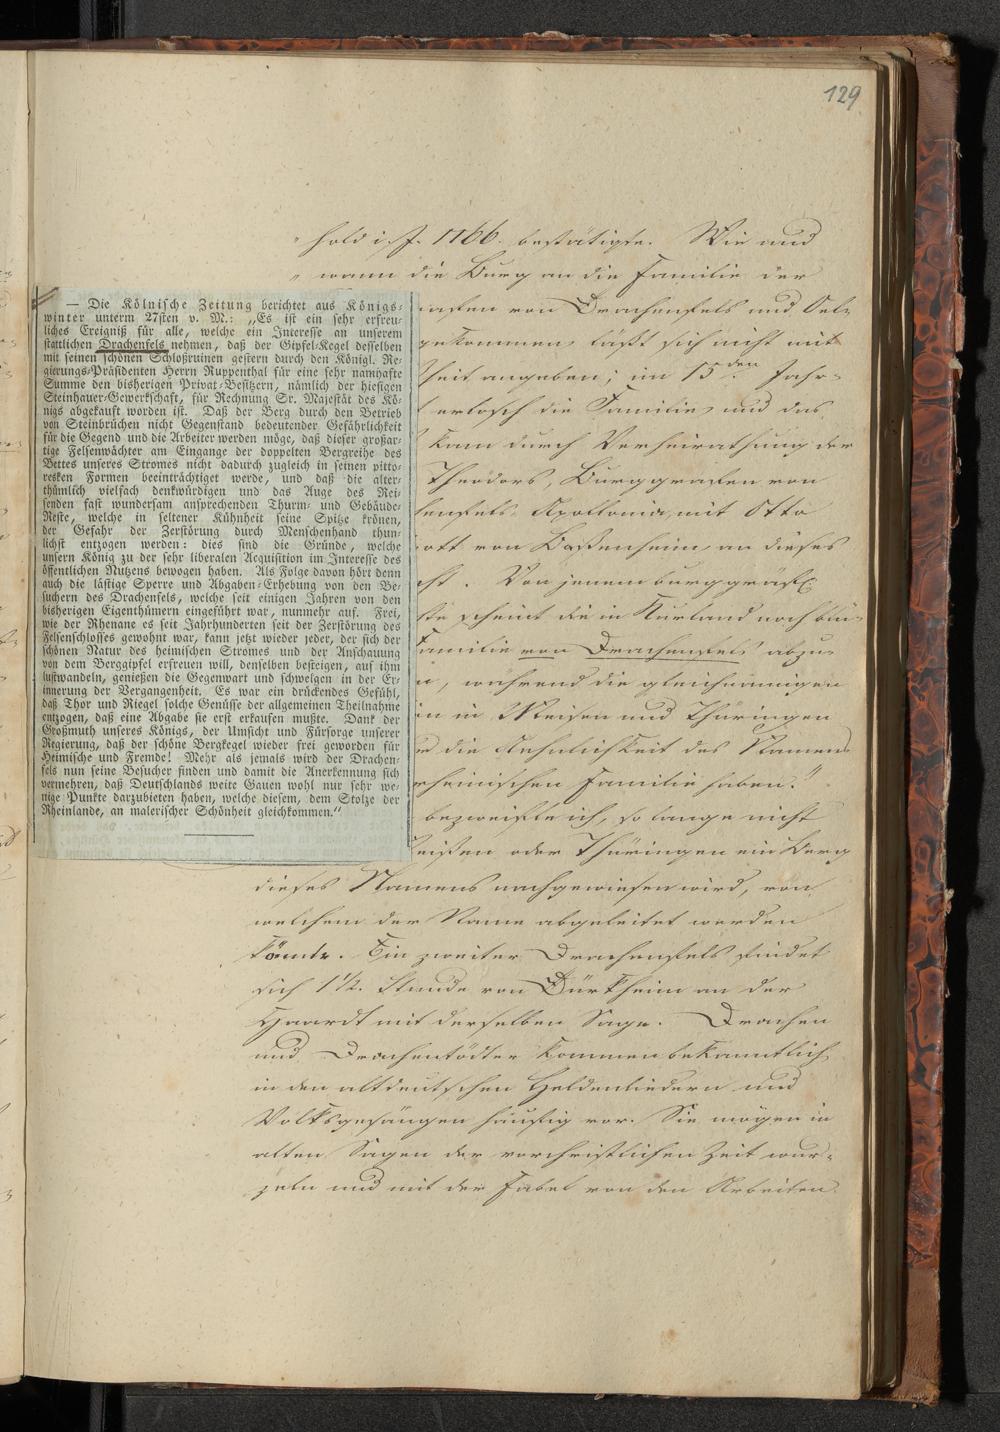 129
„hold i. J. 1166. bestätigte. Wie und
„wann die Burg an die Familie der
— Die Kölnische Zeitung berichtet aus Königs-
winter unterm 27sten v. M.: „Es ist ein sehr erfreu-
liches Ereigniß für alle, welche ein Interesse an unserem
stattlichen Drachenfels nehmen, daß der Gipfel-Kegel desselben
mit seinen schönen Schloßruinen gestern durch den Königl. Re-
gierungs-Präsidenten Herrn Ruppenthal für eine sehr namhafte
Summe den bisherigen Privat-Besitzern, nämlich der hiesigen
Steinhauer-Gewerkschaft, für Rechnung Sr. Majestät des Kö-
nigs abgekauft worden ist. Daß der Berg durch den Betrieb
von Steinbrüchen nicht Gegenstand bedeutender Gefährlichkeit
für die Gegend und die Arbeiter werden möge, daß dieser großar-
tige Felsenwächter am Eingange der doppelten Bergreihe des
Bettes unseres Stromes nicht dadurch zugleich in seinen pitto-
resken Formen beeinträchtiget werde, und daß die alter-
thümlich vielfach denkwürdigen und das Auge des Rei-
senden fast wundersam ansprechenden Thurm- und Gebäude-
Reste, welche in seltener Kühnheit seine Spitze krönen,
der Gefahr der Zerstörung durch Menschenhand thun-
lichst entzogen werden: dies sind die Gründe, welche
unsern König zu der sehr liberalen Acquisition im Interesse des
öffentlichen Nutzens bewogen haben. Als Folge davon hört denn
auch die lästige Sperre und Abgaben-Erhebung von den Be-
suchern des Drachenfels, welche seit einigen Jahren von den
bisherigen Eigenthümern eingeführt war, nunmehr auf. Frei,
wie der Rhenane es seit Jahrhunderten seit der Zerstörung des
Felsenschlosses gewohnt war, kann jetzt wieder jeder, der sich der
schönen Natur des heimischen Stromes und der Anschauung
von dem Berggipfel erfreuen will, denselben besteigen, auf ihm
lustwandeln, genießen die Gegenwart und schwelgen in der Er-
innerung der Vergangenheit. Es war ein drückendes Gefühl,
daß Thor und Riegel solche Genüsse der allgemeinen Theilnahme
entzogen, daß eine Abgabe sie erst erkaufen mußte. Dank der
Großmuth unseres Königs, der Umsicht und Fürsorge unserer
Regierung, daß der schöne Bergkegel wieder frei geworden für
Heimische und Fremde! Mehr als jemals wird der Drachen-
fels nun seine Besucher finden und damit die Anerkennung sich
vermehren, daß Deutschlands weite Gauen wohl nur sehr we-
nige Punkte darzubieten haben, welche diesem, dem Stolze der
Rheinlande, an malerischer Schönheit gleichkommen.“
von Drachenfels und
gekommen, läßt sich nicht mit
angeben; im 15den Jahr-
erlosch die Familie, und das
kam durch Verheirathung der
Theodors, Burggrafen von
Apollonia, mit Otto
von Baßenheim an dieses
Von jenem burggräfl.
scheint die in Kurland noch blü-
Familie von Drachenfels abzu-
während die gleichnamigen
in Meisen und Thüringen
die Aehnlichkeit des Namens
rheinischen Familie haben.“
bezweifle ich, so lange nicht
oder Thüringen ein Berg
dieses Namens nachgewiesen wird, von
welchem der Name abgeleitet werden
könnte. Ein zweiter Drachenfels findet
sich 1½. Stunde von Dürkheim an der
Haardt mit derselben Sage. Drachen
und Drachentödter kommen bekanntlich
in den altdeutschen Heldenliedern und
Volksgesängen häufig vor. Sie mögen in
alten Sagen der vorchristlichen Zeit wur-
zeln und mit der Fabel von den Arbeiten